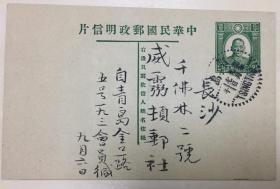 中華民國郵政明信片
右邊只寫收信人姓名住址
長沙
千佛林二號
威靄頓郵社
自青島金口路
五号一九三會員緘
九月六日